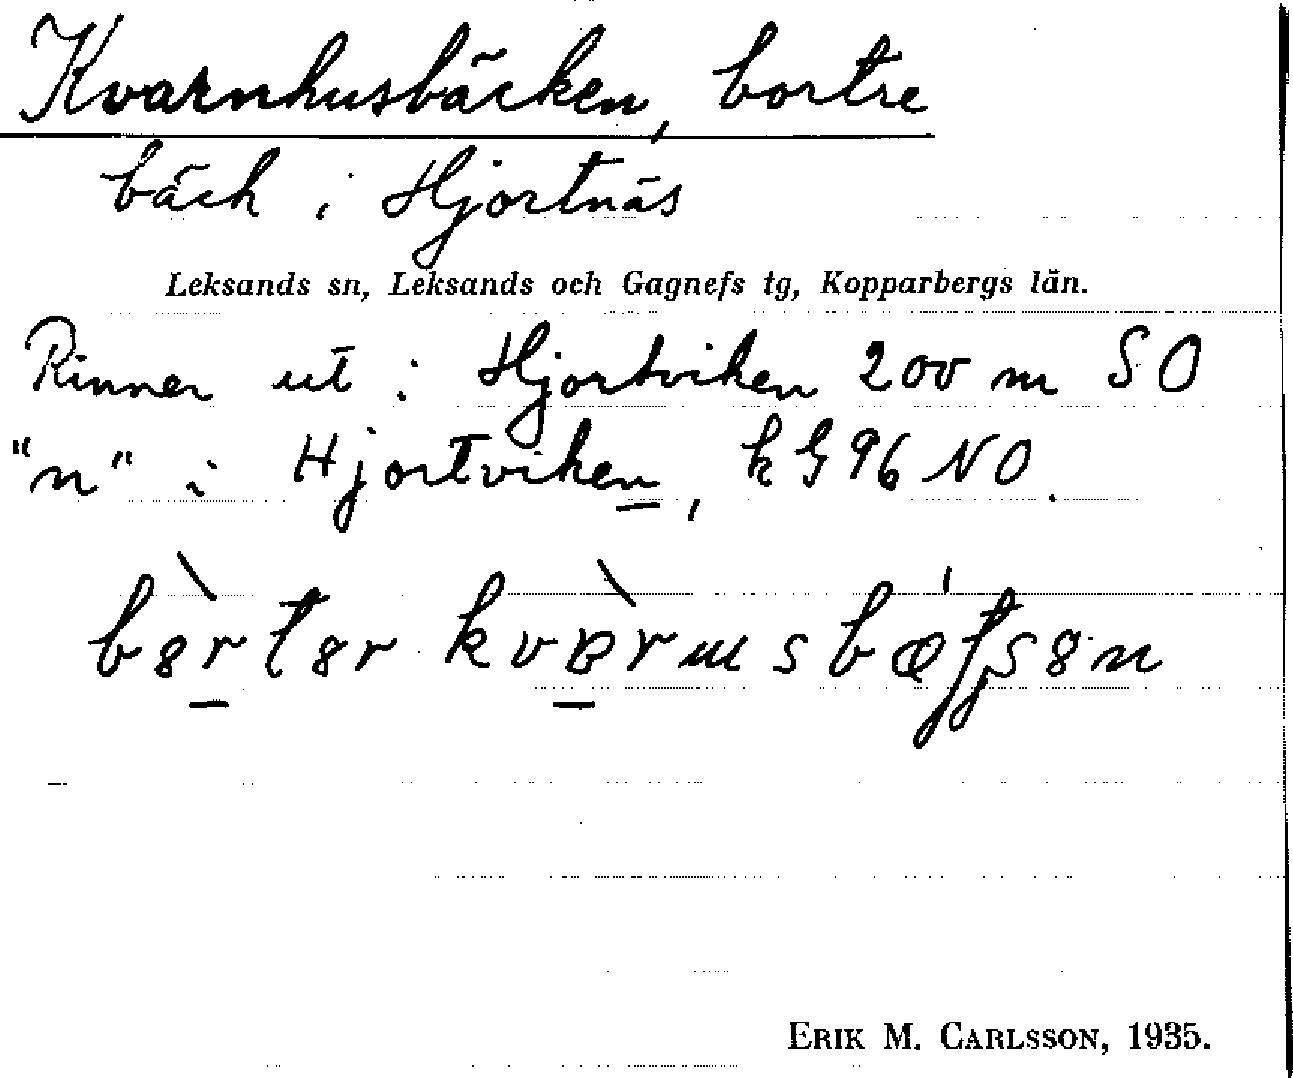 Kvarnhusbäcken, bortre
bäck i Hjortnäs
Leksands sn, Leksands och Gagnefs tg, Kopparbergs län.
Rinner ut i Hjortviken 200 m SO
"n" i Hjortviken, kG96NO.
ERIK M. CARLSSON, 1935.